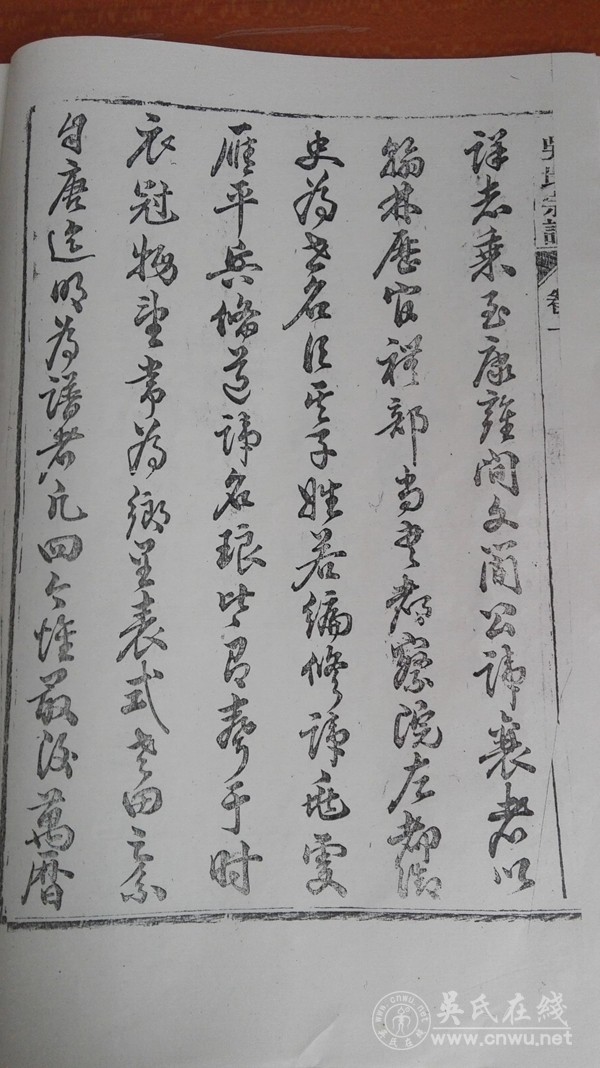 吳氏宗譜 卷一
詳志乘至康雍間文簡公諱襄者以
翰林歷官禮部尚書都察院左都御
史為世名臣其子姓若編修諱兆雯
雁平兵備道諱名琅皆有聲于时
衣冠物望常為鄉里表式老田之系
自唐迄明為譜者凡四今惟最後萬曆
吳氏在綫
www.cnwu.net